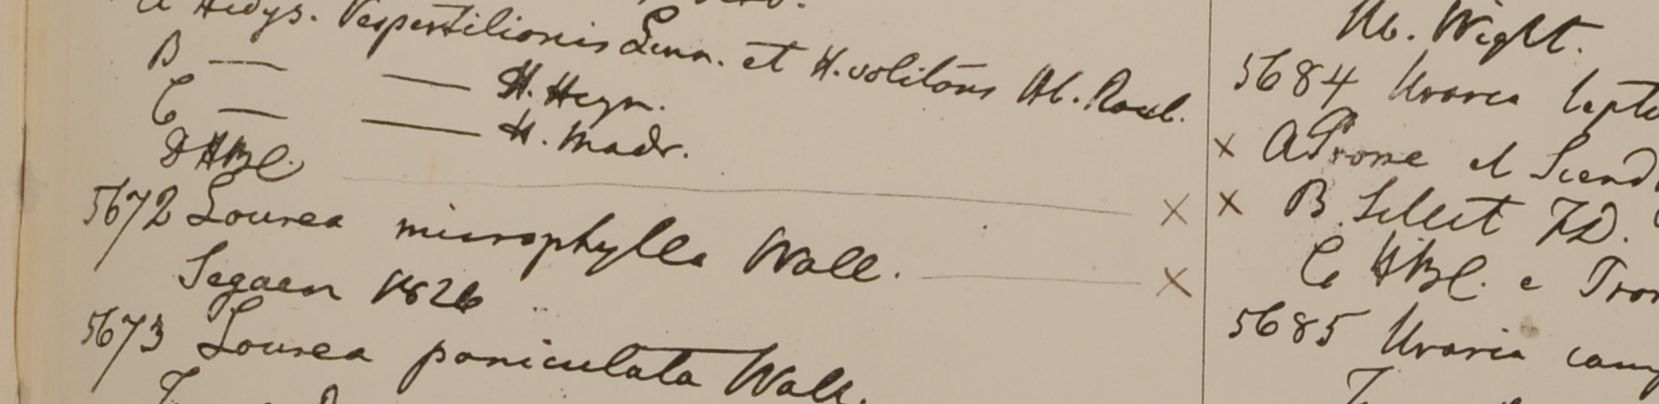 A Hedys. Vespertilionis Linn. et H. volitans Hb. Roxb.
B — — H. Heyn.
C — — H. Madr.
D HBC. X
5672 Lourea microphylla Wall. — X
Segaen 1826
5673 Lourea paniculata Wall.
Hb. Wight.
5684 Uraria lepto
x A Prome et
x B Select FD.
C HBC. e
5685 Uraria cam